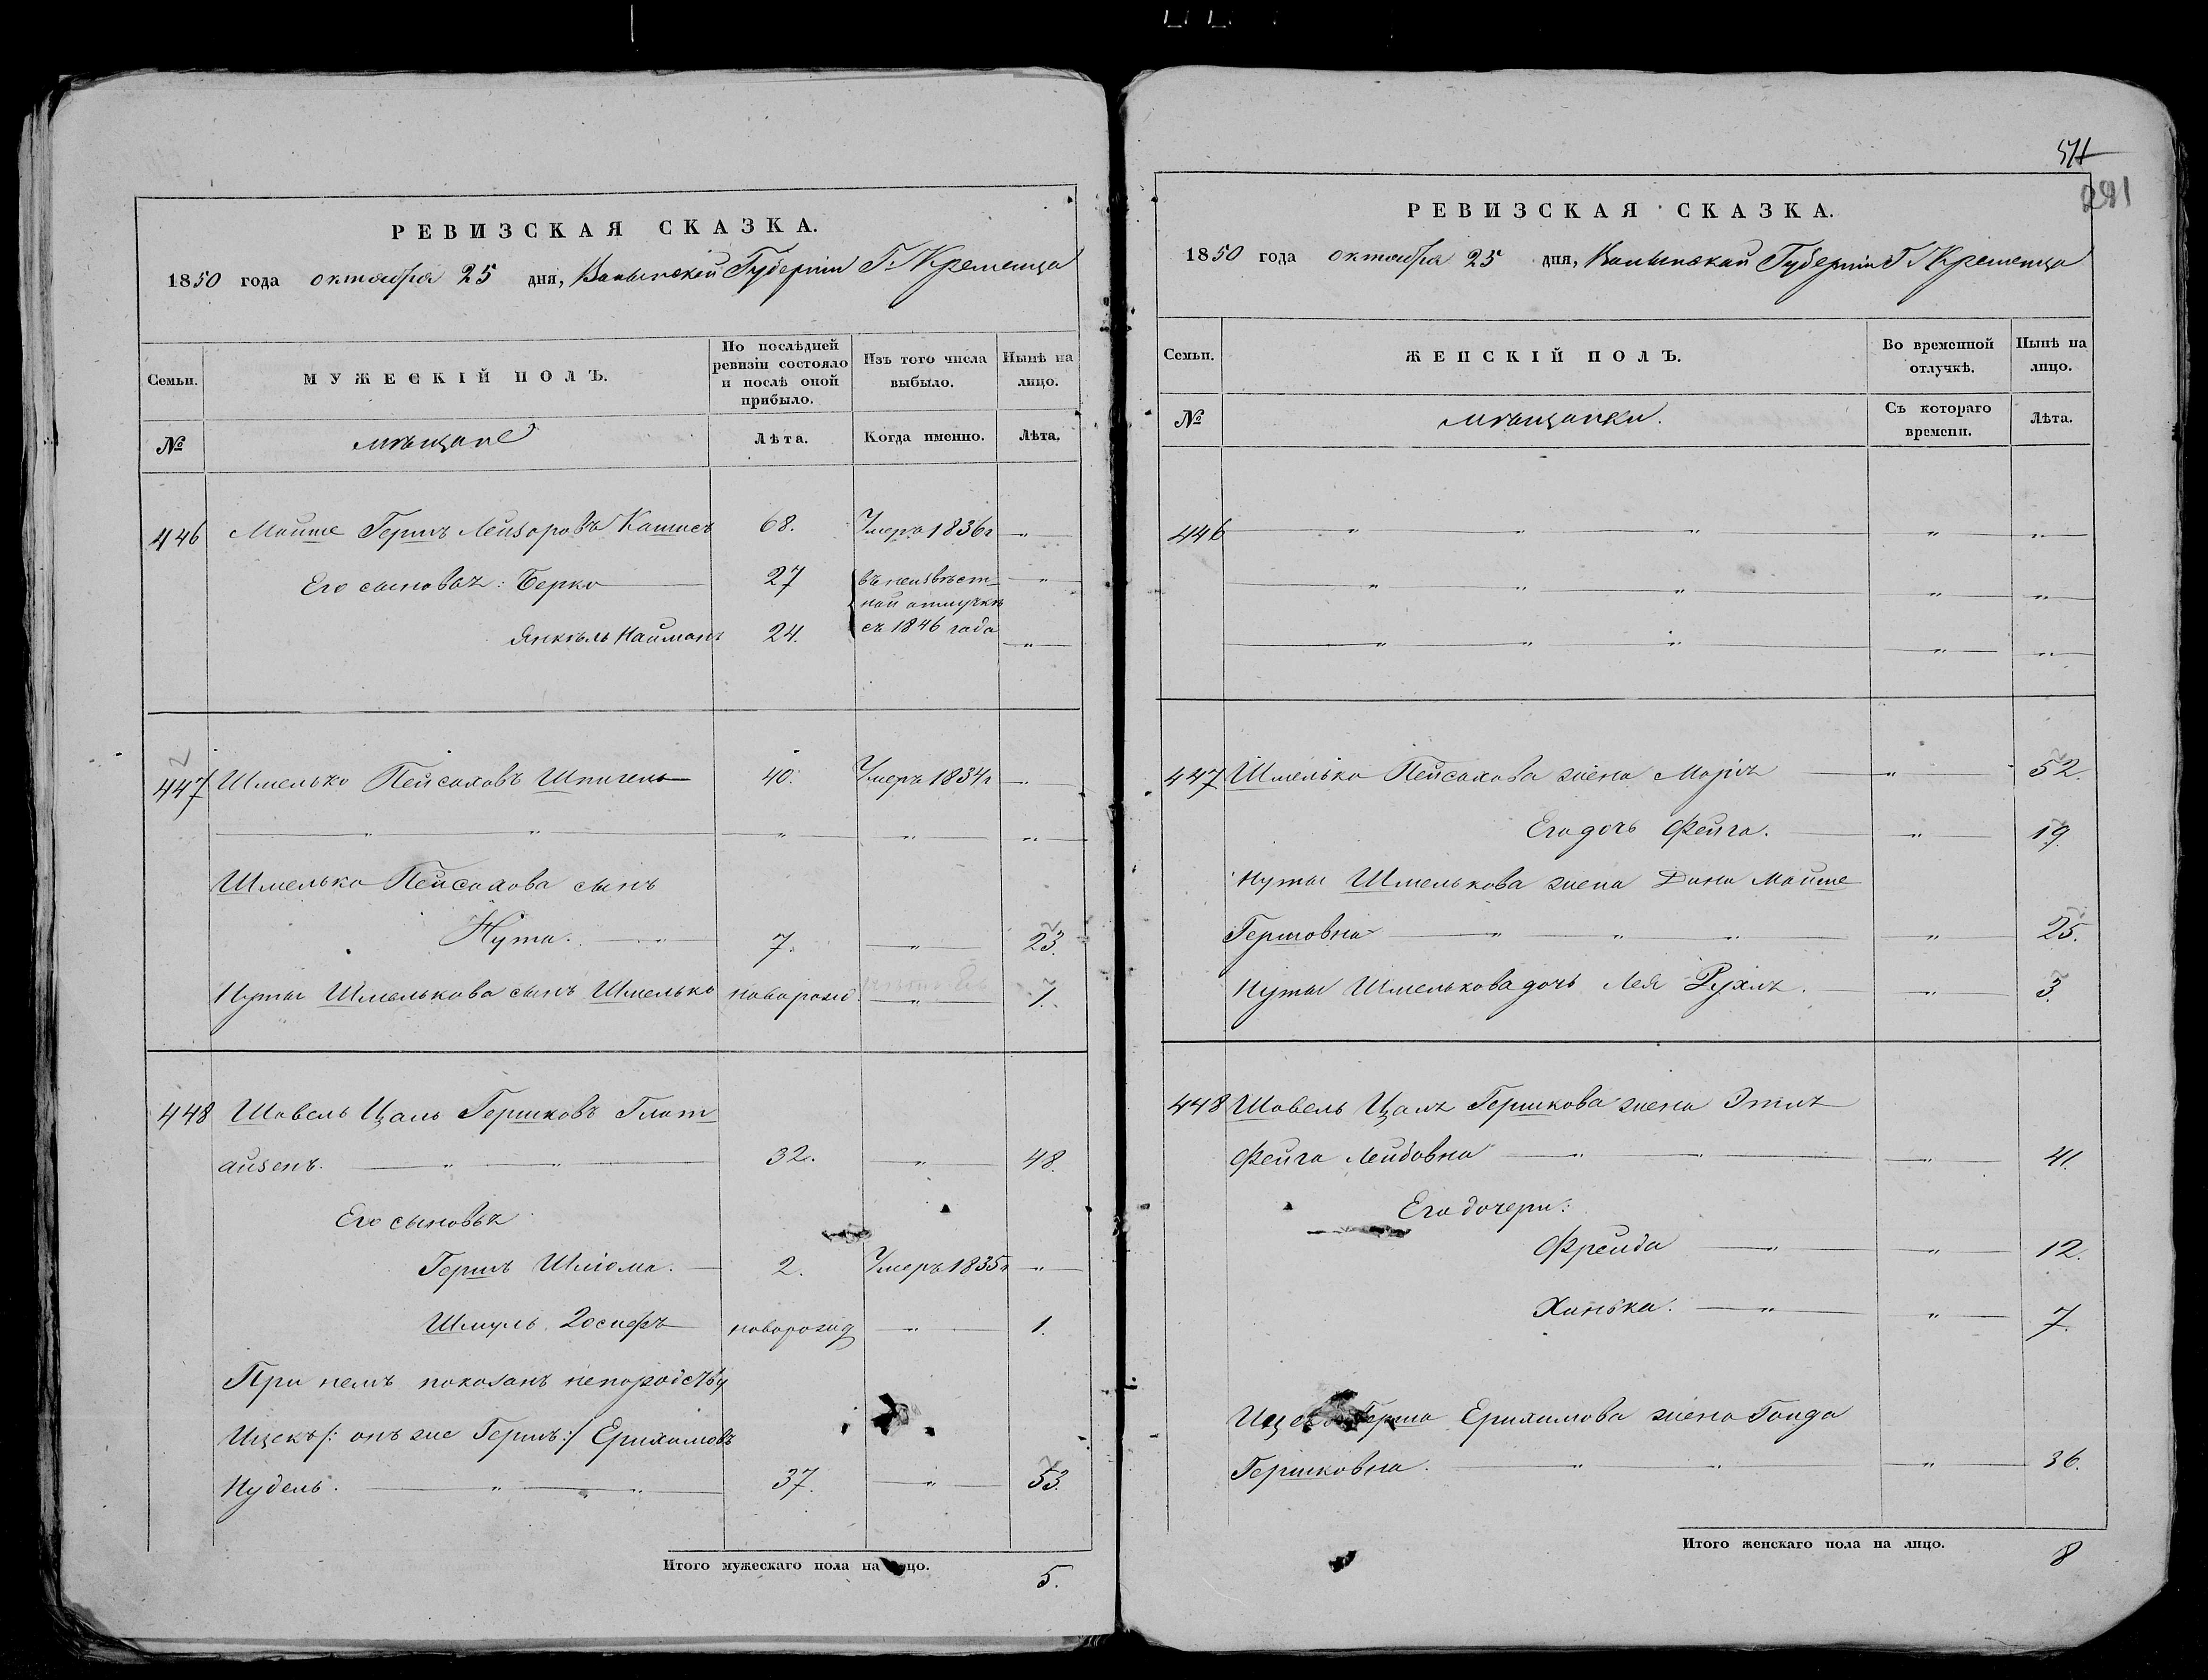 РЕВИЗСКАЯ СКАЗКА.
1850 года октября 25 дня, Волынской Губерніи Г. Кременца
Семьи.
МУЖЕСКІЙ ПОЛЪ.
По послѣдней ревизіи состояло и послѣ оной прибыло.
Изъ того числа выбыло.
Нынѣ на лицо.
№
мѣщане
Лѣта.
Когда именно.
Лѣта.
446 Мойше Гершъ Лейзоровъ 68. Умеръ 1836г „
Его сыновья: Берко 27 въ неизвѣст- „
ной отлучкѣ
Янкѣль Найманъ 24. съ 1846 года „
447 Шмелько Пейсаховъ Шпигель 40. Умеръ 1834г „
„ „ „ „ „
Шмелько Пейсахова сынъ
Нута. 7. „ 23.
Нуты Шмелькова сынъ Шмелько новорожд. „ 1.
448 Шовель Цаль Гершковъ Глат
айзенъ. „ „ 32. „ 48.
Его сыновья
Гершъ Шліома. 2. Умеръ 1835г „
Шмуль Іосифъ новорожд „ 1.
При немъ показанъ непородству
Ицекъ/: онъ же Гершъ:/ Ерихимовъ
Нудель. „ „ 37. „ 53.
Итого мужескаго пола на лицо. 5.
571
291
РЕВИЗСКАЯ СКАЗКА.
1850 года октября 25 дня, Волынской Губерніи Г. Кременца
Семьи.
ЖЕНСКІЙ ПОЛЪ.
Во временной отлучкѣ.
Нынѣ на лицо.
№
мѣщанки.
Съ котораго времени.
Лѣта.
446 „ „ „ „ „
„ „ „ „ „
„ „ „ „ „
447 Шмелько Пейсахова жена Марія „ 52.
Его дочь Фейга. „ 19.
Нуты Шмелькова жена Дина Мойше
Гершовна „ „ „ „ 25.
Нуты Шмелькова дочь Лея Рухля. „ 3.
448 Шовель Цаля Гершкова жена Этля
Фейга Лейбовна „ „ „ 41.
Его дочери:
Фрейда „ „ 12.
Ханька. „ „ 7.
Ицека Герша Ерихимова жена Голда
Гершковна. „ „ „ 36.
Итого женскаго пола на лицо. 8